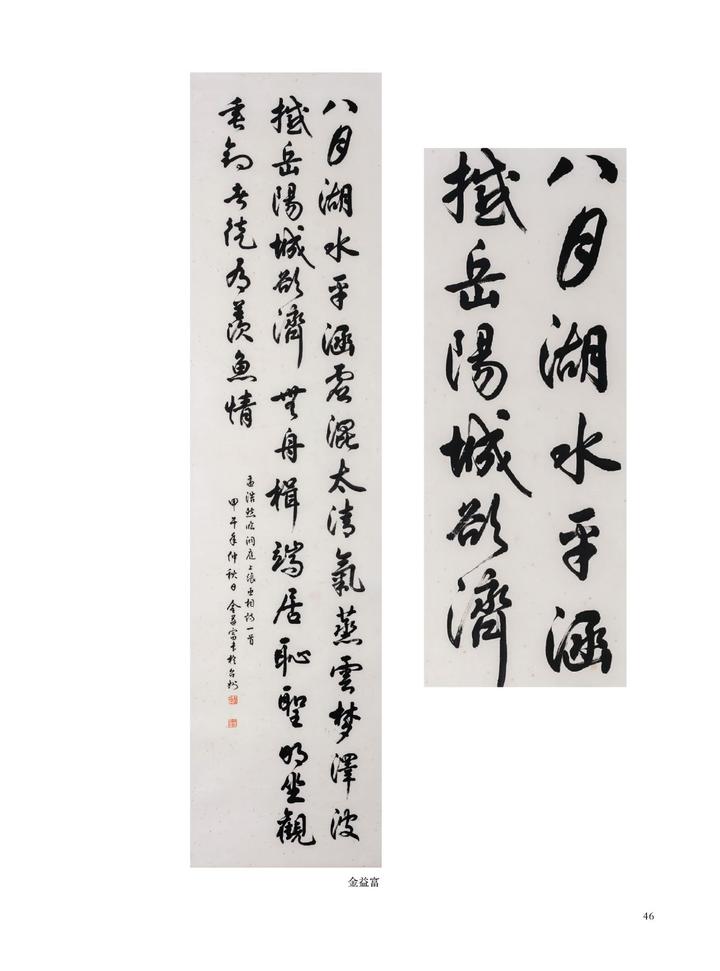 八月湖水平涵虛混太清氣蒸雲梦澤波
撼岳陽城欲濟無舟楫端居恥聖明坐觀
垂釣者徒为羨魚情
孟浩然临洞庭上張丞相詩一首
甲午年仲秋日金益富書於台州
八月湖水平涵
撼岳陽城欲濟
金益富
46